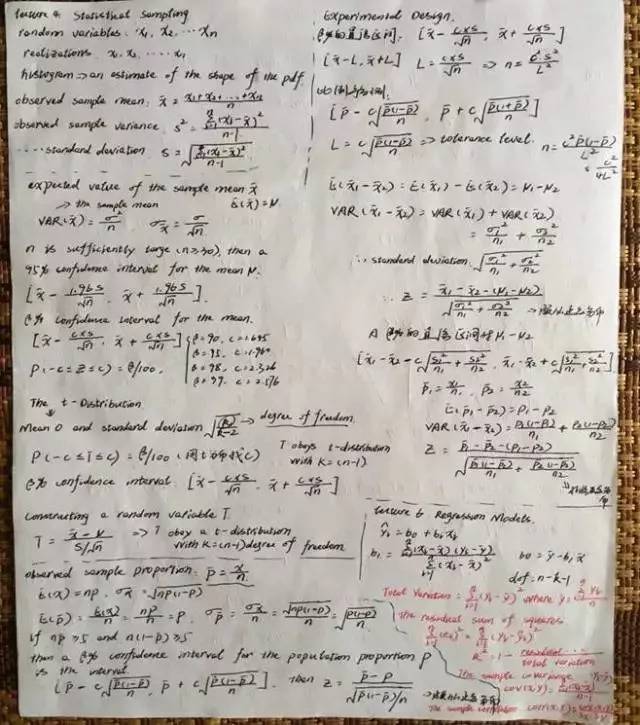 Lecture 4 Statistical Sampling
random variables: x₁, x₂, ⋯ xn
realizations x₁, x₂, ⋯, xn
histogram => an estimate of the shape of the pdf.
observed sample mean: x̄ = (x₁+x₂+...+xn)/n
observed sample variance s² = Σ(xi-x̄)²/(n-1)
.... standard deviation s = √(Σ(xi-x̄)²/(n-1))
expected value of the sample mean x̄
-> the sample mean E(x̄) = μ
VAR(x̄) = σ²/n σx̄ = σ/√n
n is sufficiently large (n≥30), then a
95% confidence interval for the mean μ.
[x̄ - 1.96s/√n, x̄ + 1.96s/√n].
β% confidence interval for the mean.
[x̄ - c×s/√n, x̄ + c×s/√n]
β=90, c=1.645
β=95, c=1.960
β=98, c=2.326
β=99, c=2.576
P(-c≤Z≤c) = β/100.
The t-Distribution
Mean 0 and standard deviation √(k/(k-2)) -> degree of freedom.
P(-c≤T≤c) = β/100 T obeys t-distribution
with K=(n-1)
β% confidence interval [x̄ - c×s/√n, x̄ + c×s/√n]
Constructing a random variable T
T = (x̄-μ)/(S/√n) => T obey a t-distribution
with K=(n-1) degree of freedom
observed sample proportion: p̄ = x/n.
E(x) = np, σx = √(np(1-p))
E(p̄) = E(x)/n = np/n = p, σp̄ = σx/n = √(np(1-p))/n = √(p(1-p)/n)
if np≥5 and n(1-p)≥5
then a β% confidence interval for the population proportion P
is the interval
[p̄ - c√(p̄(1-p̄)/n), p̄ + c√(p̄(1-p̄)/n)]. then Z = (p̄-p)/√(p(1-p)/n)
Experimental Design.
[x̄ - c×s/√n, x̄ + c×s/√n]
[x̄-L, x̄+L] L = c×s/√n => n = c²s²/L²
[p̄ - c√(p̄(1-p̄)/n), p̄ + c√(p̄(1+p̄)/n)]
L = c√(p̄(1-p̄)/n) => tolerance level. n = c²p̄(1-p̄)/L²
= c²/4L²
E(x̄₁-x̄₂) = E(x̄₁) - E(x̄₂) = μ₁-μ₂
VAR(x̄₁-x̄₂) = VAR(x̄₁) + VAR(x̄₂)
= σ₁²/n₁ + σ₂²/n₂
∴ standard deviation √(σ₁²/n₁ + σ₂²/n₂)
∴ Z = (x̄₁-x̄₂-(μ₁-μ₂))/√(σ₁²/n₁ + σ₂²/n₂)
[x̄₁-x̄₂-c√(s₁²/n₁ + s₂²/n₂), x̄₁-x̄₂+c√(s₁²/n₁ + s₂²/n₂)]
p̄₁ = x₁/n₁, p̄₂ = x₂/n₂
E(p̄₁-p̄₂) = p₁-p₂
VAR(x̄₁-x̄₂) = p₁(1-p₁)/n₁ + p₂(1-p₂)/n₂
Z = (p̄₁-p̄₂-(p₁-p₂))/√(p₁(1-p₁)/n₁ + p₂(1-p₂)/n₂)
Lecture 6 Regression Models.
ŷi = b₀ + b₁xi
b₁ = Σ(xi-x̄)(yi-ȳ)/Σ(xi-x̄)² b₀ = ȳ-b₁x̄
dof = n-k-1
Total Variation = Σ(yi-ȳ)² where ȳ = Σyi/n
The residual sum of squares
Σ(ei)² = Σ(yi-ŷi)²
R² = 1 - residual / total variation
The sample covariance
cov(x,y)
The sample correlation corr(x,y)